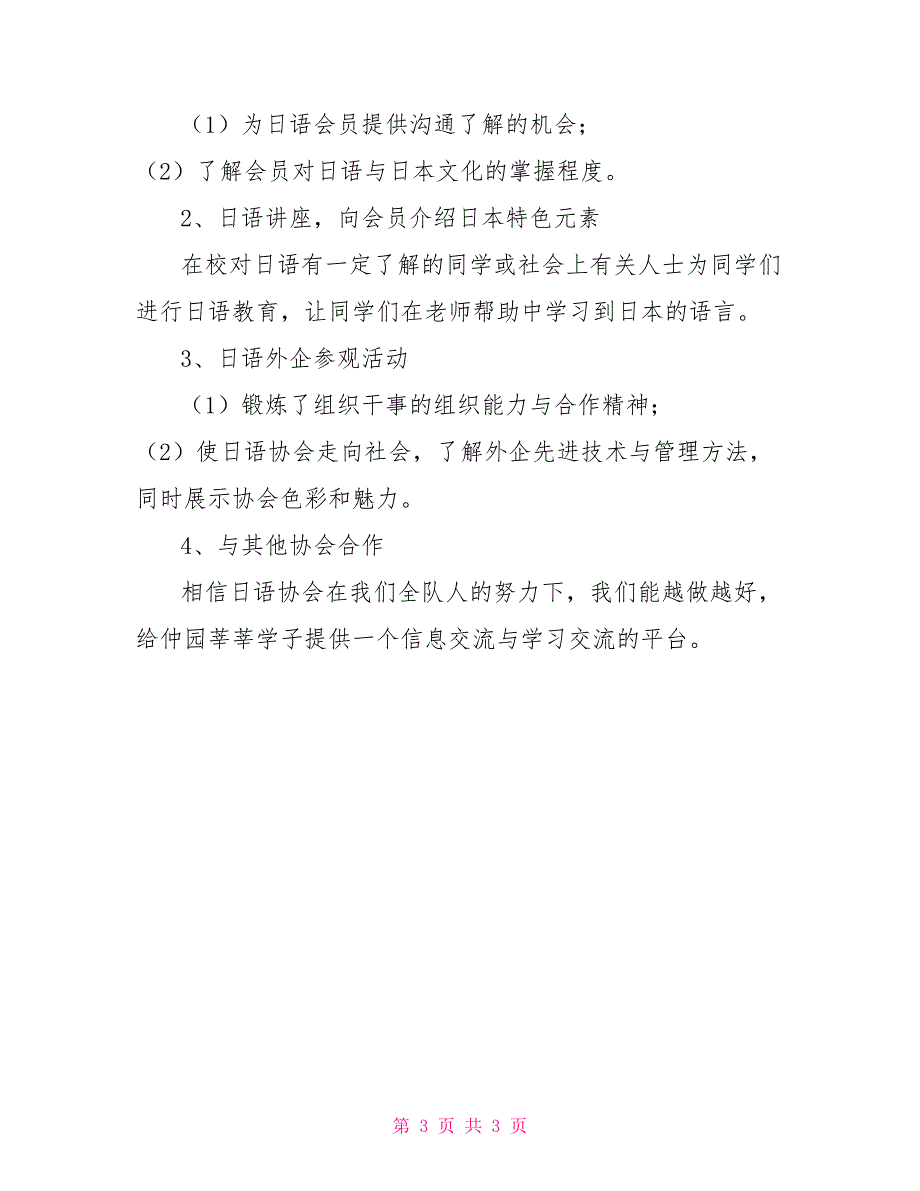 （1）为日语会员提供沟通了解的机会；
（2）了解会员对日语与日本文化的掌握程度。
2、日语讲座，向会员介绍日本特色元素
在校对日语有一定了解的同学或社会上有关人士为同学们
进行日语教育，让同学们在老师帮助中学习到日本的语言。
3、日语外企参观活动
（1）锻炼了组织干事的组织能力与合作精神；
（2）使日语协会走向社会，了解外企先进技术与管理方法，
同时展示协会色彩和魅力。
4、与其他协会合作
相信日语协会在我们全队人的努力下，我们能越做越好，
给仲园莘莘学子提供一个信息交流与学习交流的平台。
第 3 页 共 3 页